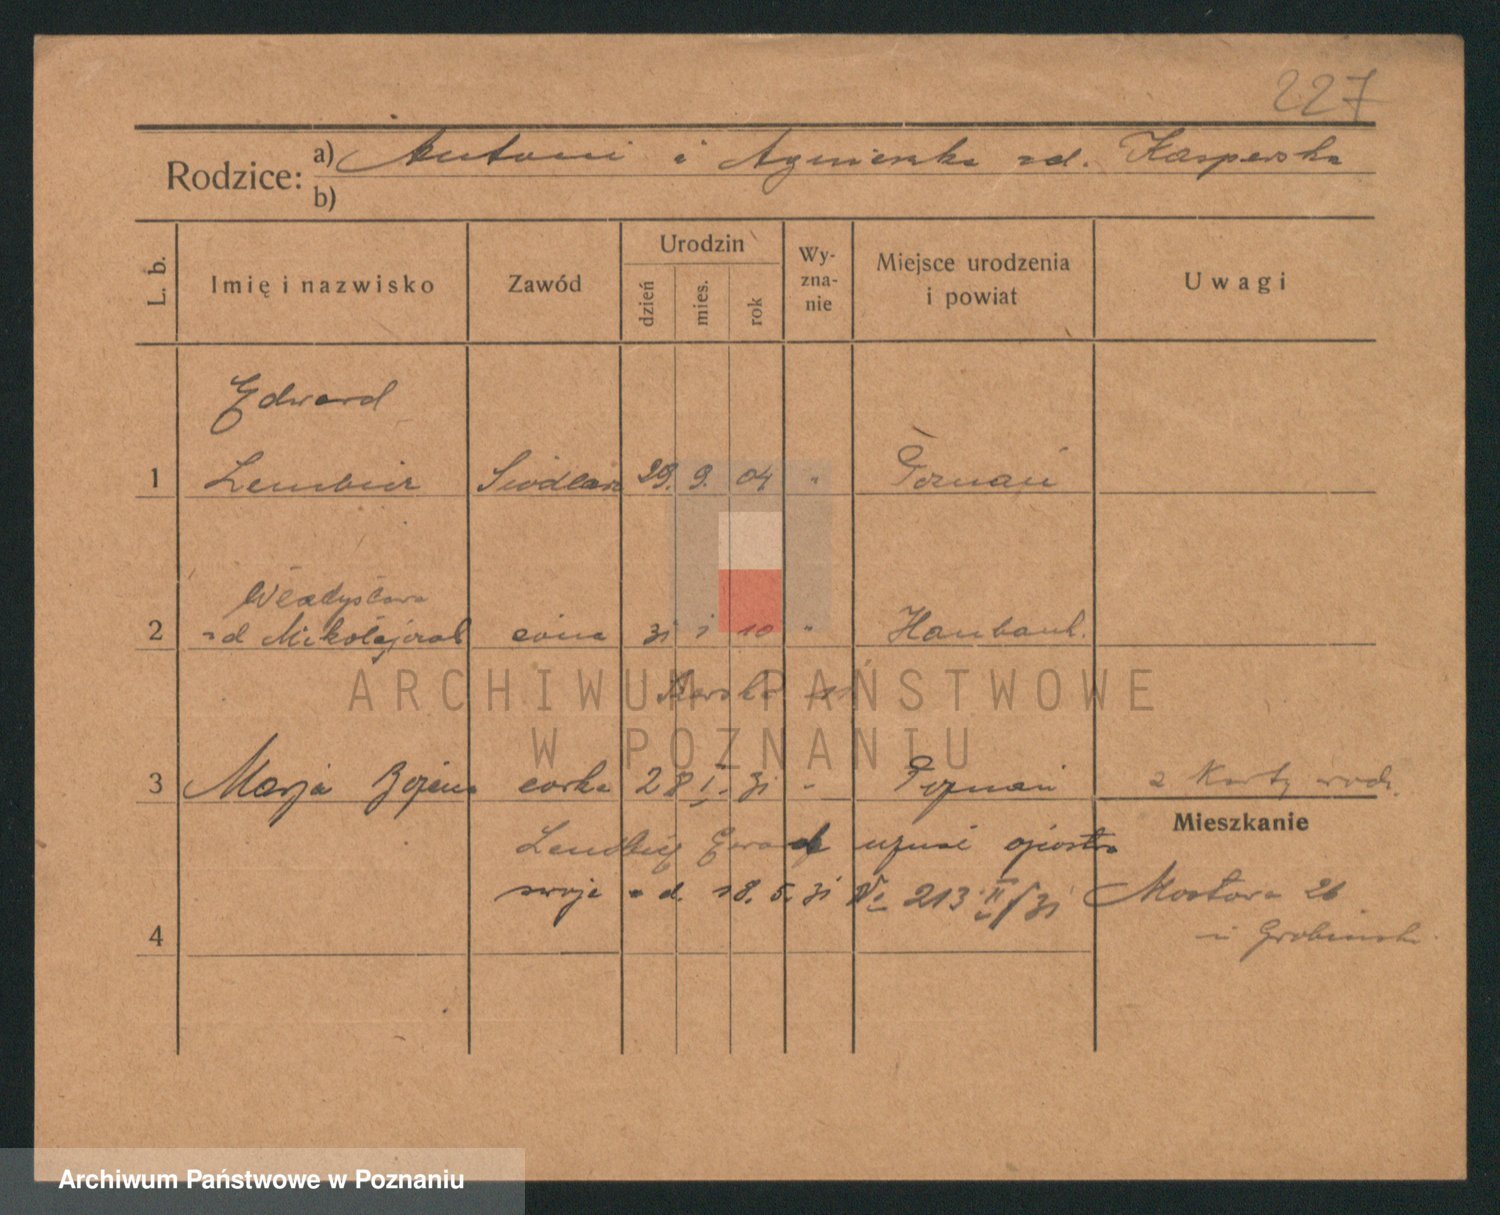 227
Rodzice: a) Antoni i Agnieszka zd. Kasperska
b)
L. b. Imię i nazwisko Zawód Urodzin dzień mies. rok Wy-zna-nie Miejsce urodzenia i powiat Uwagi
Edward
1 Siodlarz 29. 9. 04 " Poznań
Władysława
2 zd Mikołajczak żona 31 1 10 " Hamburk.
3 Marja Bożena córka 28 I. 31 - Poznań z Karty urodz.
Mieszkanie
Edward uznał ojcostwo
swoje z d. 18. 5. 31 No 213 II/31 Mostowa 26
4 u
ARCHIWUM PAŃSTWOWE
W POZNANIU
Archiwum Państwowe w Poznaniu